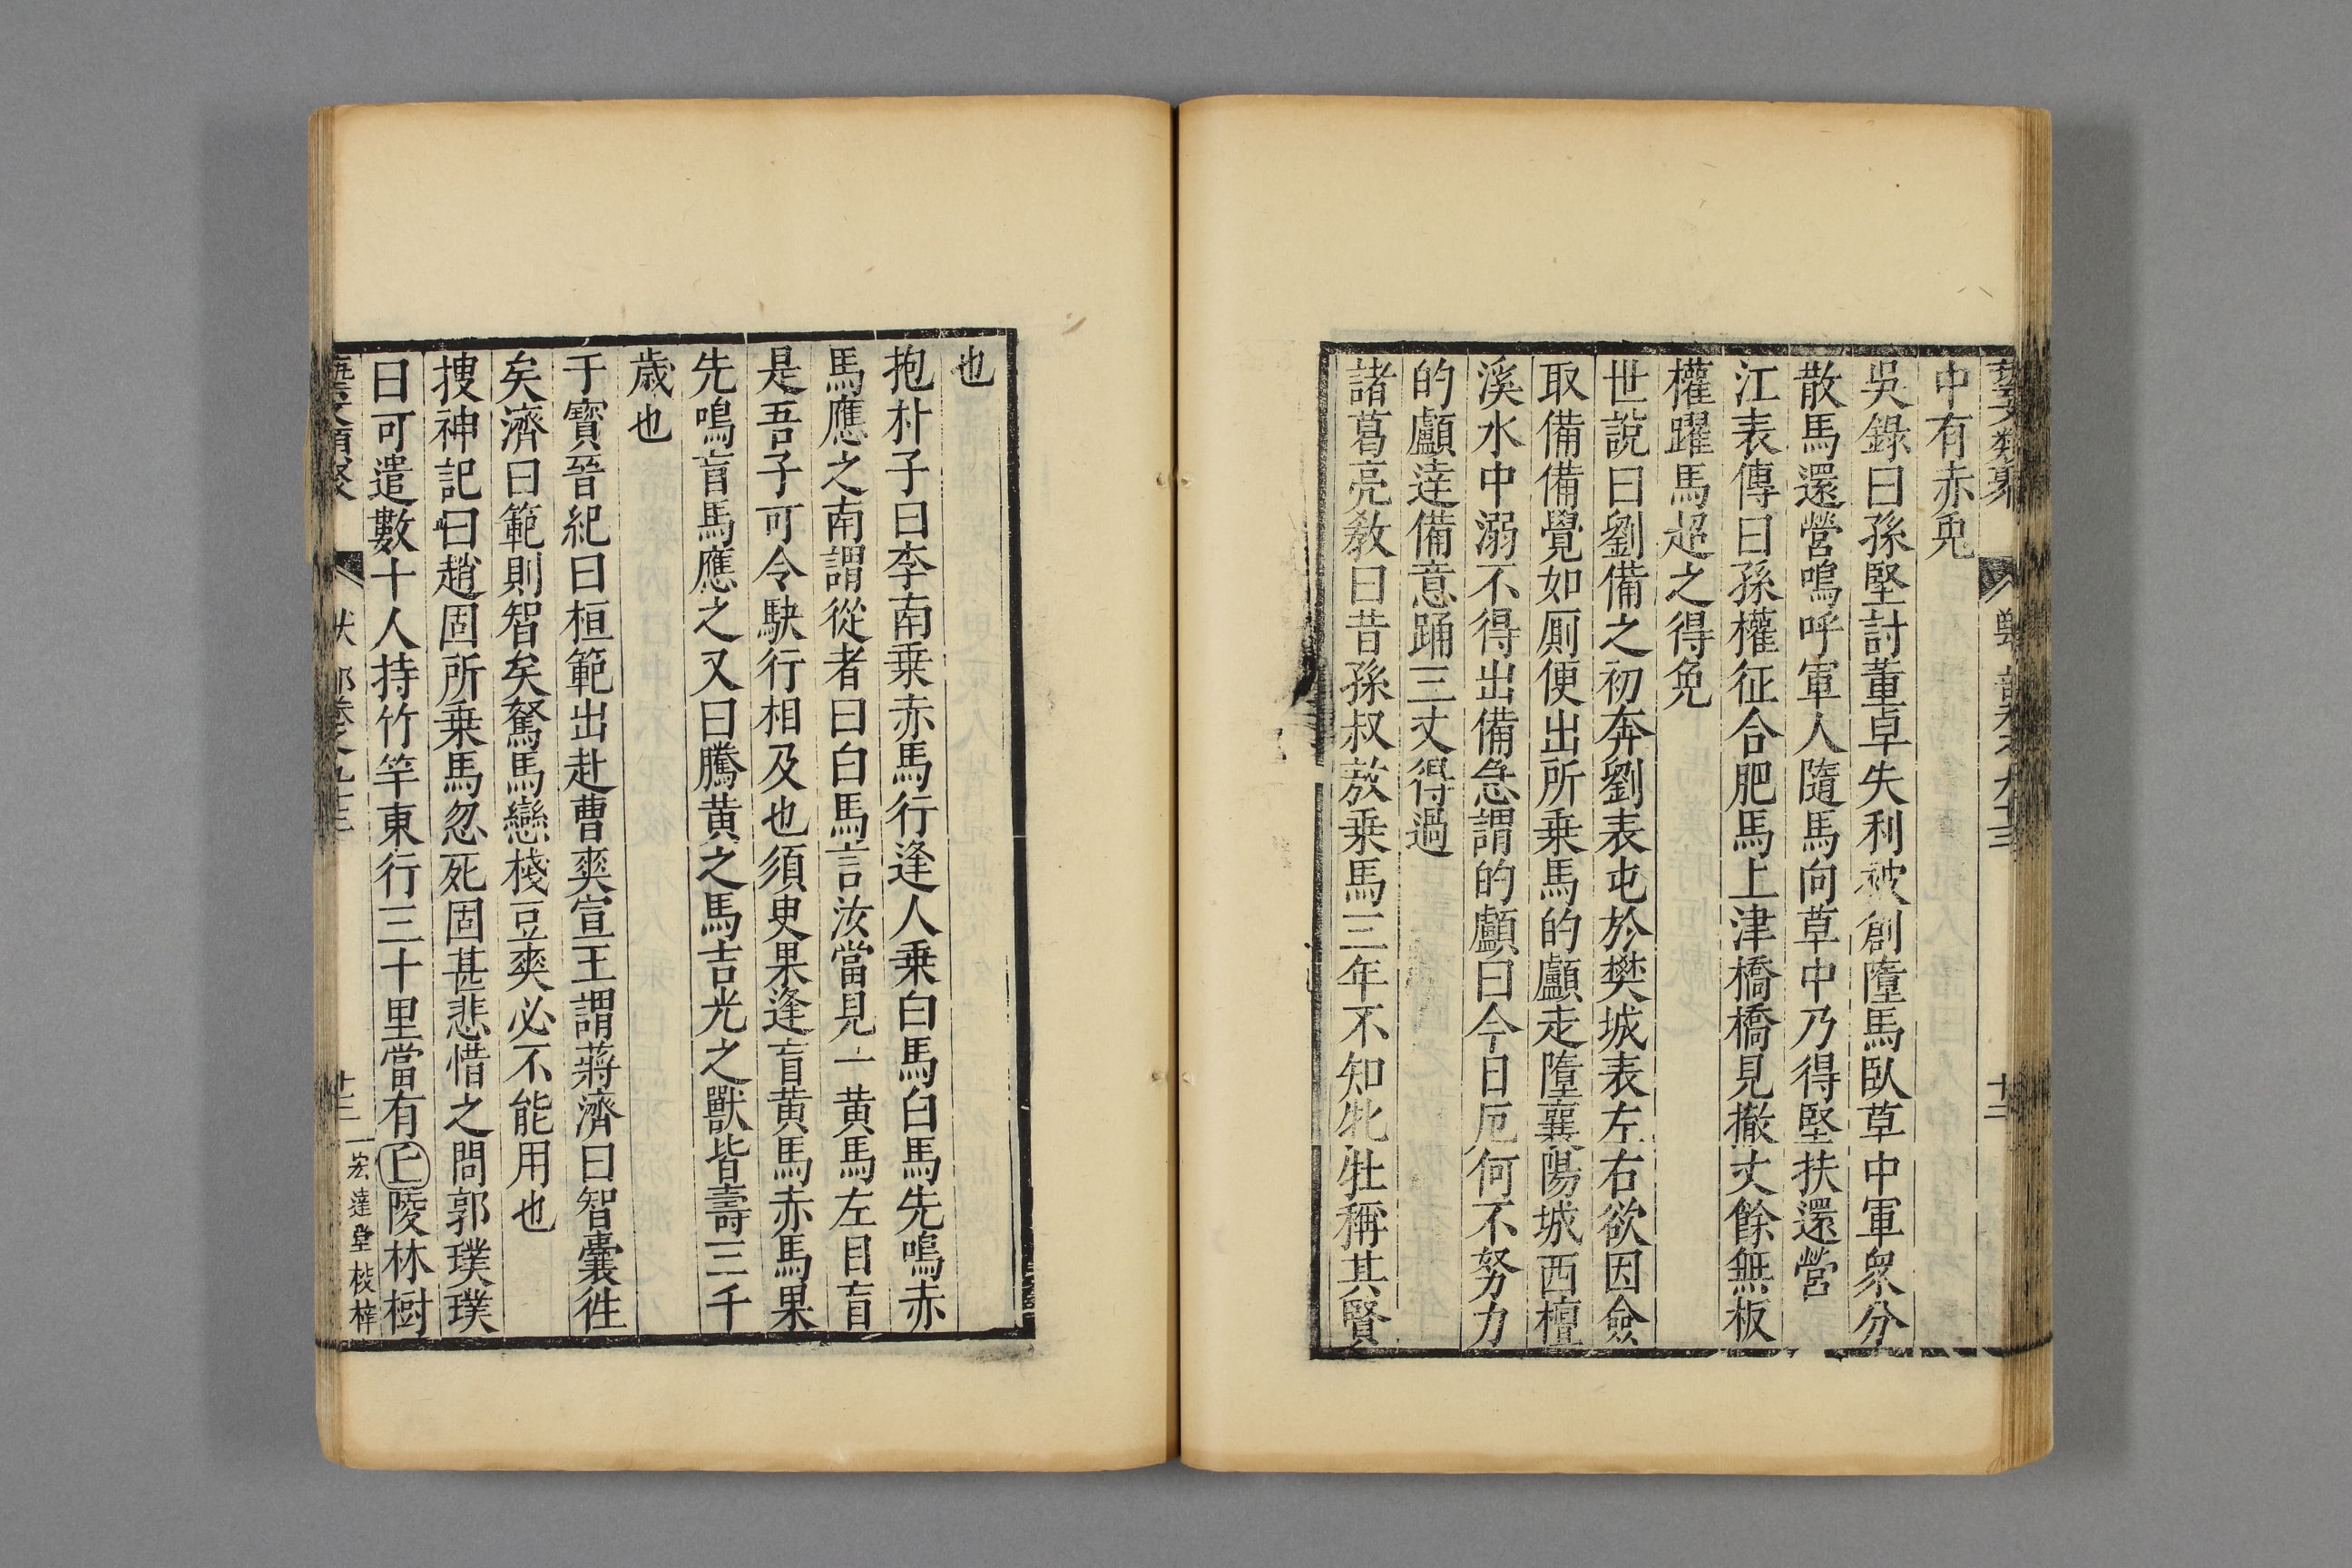 中有赤兎
吳錄曰孫堅討董卓失利被創墮馬臥草中軍衆分
散馬還營鳴呼軍人隨馬向草中乃得堅扶還營
江表傳曰孫權征合肥馬上津橋橋見撤丈餘無板
權躍馬超之得免
世說曰劉備之初奔劉表屯於樊城表左右欲因會
取備備覺如厠便出所乗馬的顱走墮襄陽城西檀
溪水中溺不得出備急謂的顱曰今日厄何不努力
的顱達備意踊三丈得過
諸葛亮敎曰昔孫叔敖乗馬三年不知牝牡稱其賢
也
抱朴子曰李南乗赤馬行逢人乗白馬白馬先鳴赤
馬應之南謂從者曰白馬言汝當見一黄馬左目盲
是吾子可令駃行相及也須臾果逢盲黄馬赤馬果
先鳴盲馬應之又曰騰黄之馬吉光之獸皆壽三千
歲也
于寶晉紀曰桓範出赴曹爽宣王謂蔣濟曰智囊徃
矣濟曰範則智矣駑馬戀棧豆爽必不能用也
搜神記曰趙固所乗馬忽死固甚悲惜之問郭璞璞
曰可遣數十人持竹竿東行三十里當有丘陵林樹
宏達堂校梓